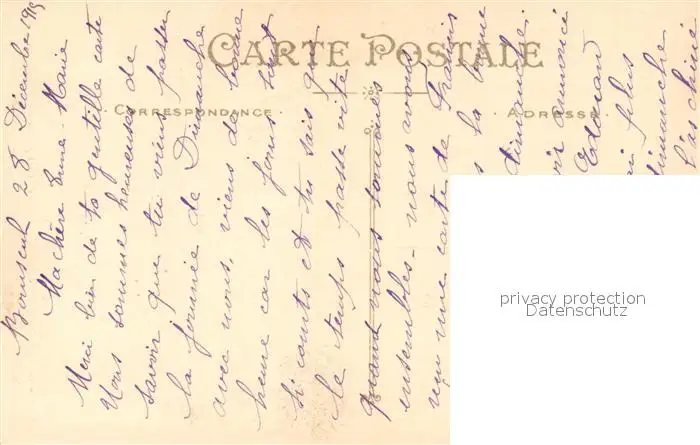 CARTE POSTALE
CORRESPONDANCE
ADRESSE
28 Décembre 1915
Ma chère Anne-Marie
Merci bien de ta gentille carte
Nous sommes heureuses de
savoir que tu viens passer
la journée de Dimanche
avec nous, viens de bonne
heure car les jours sont
si courts et tu sais que
le temps passe vite
quand nous sommes
ensembles. nous avons
reçu une carte de Francis
la bonne
dimanche
annoncé
plus
dimanche
privacy protection
Datenschutz